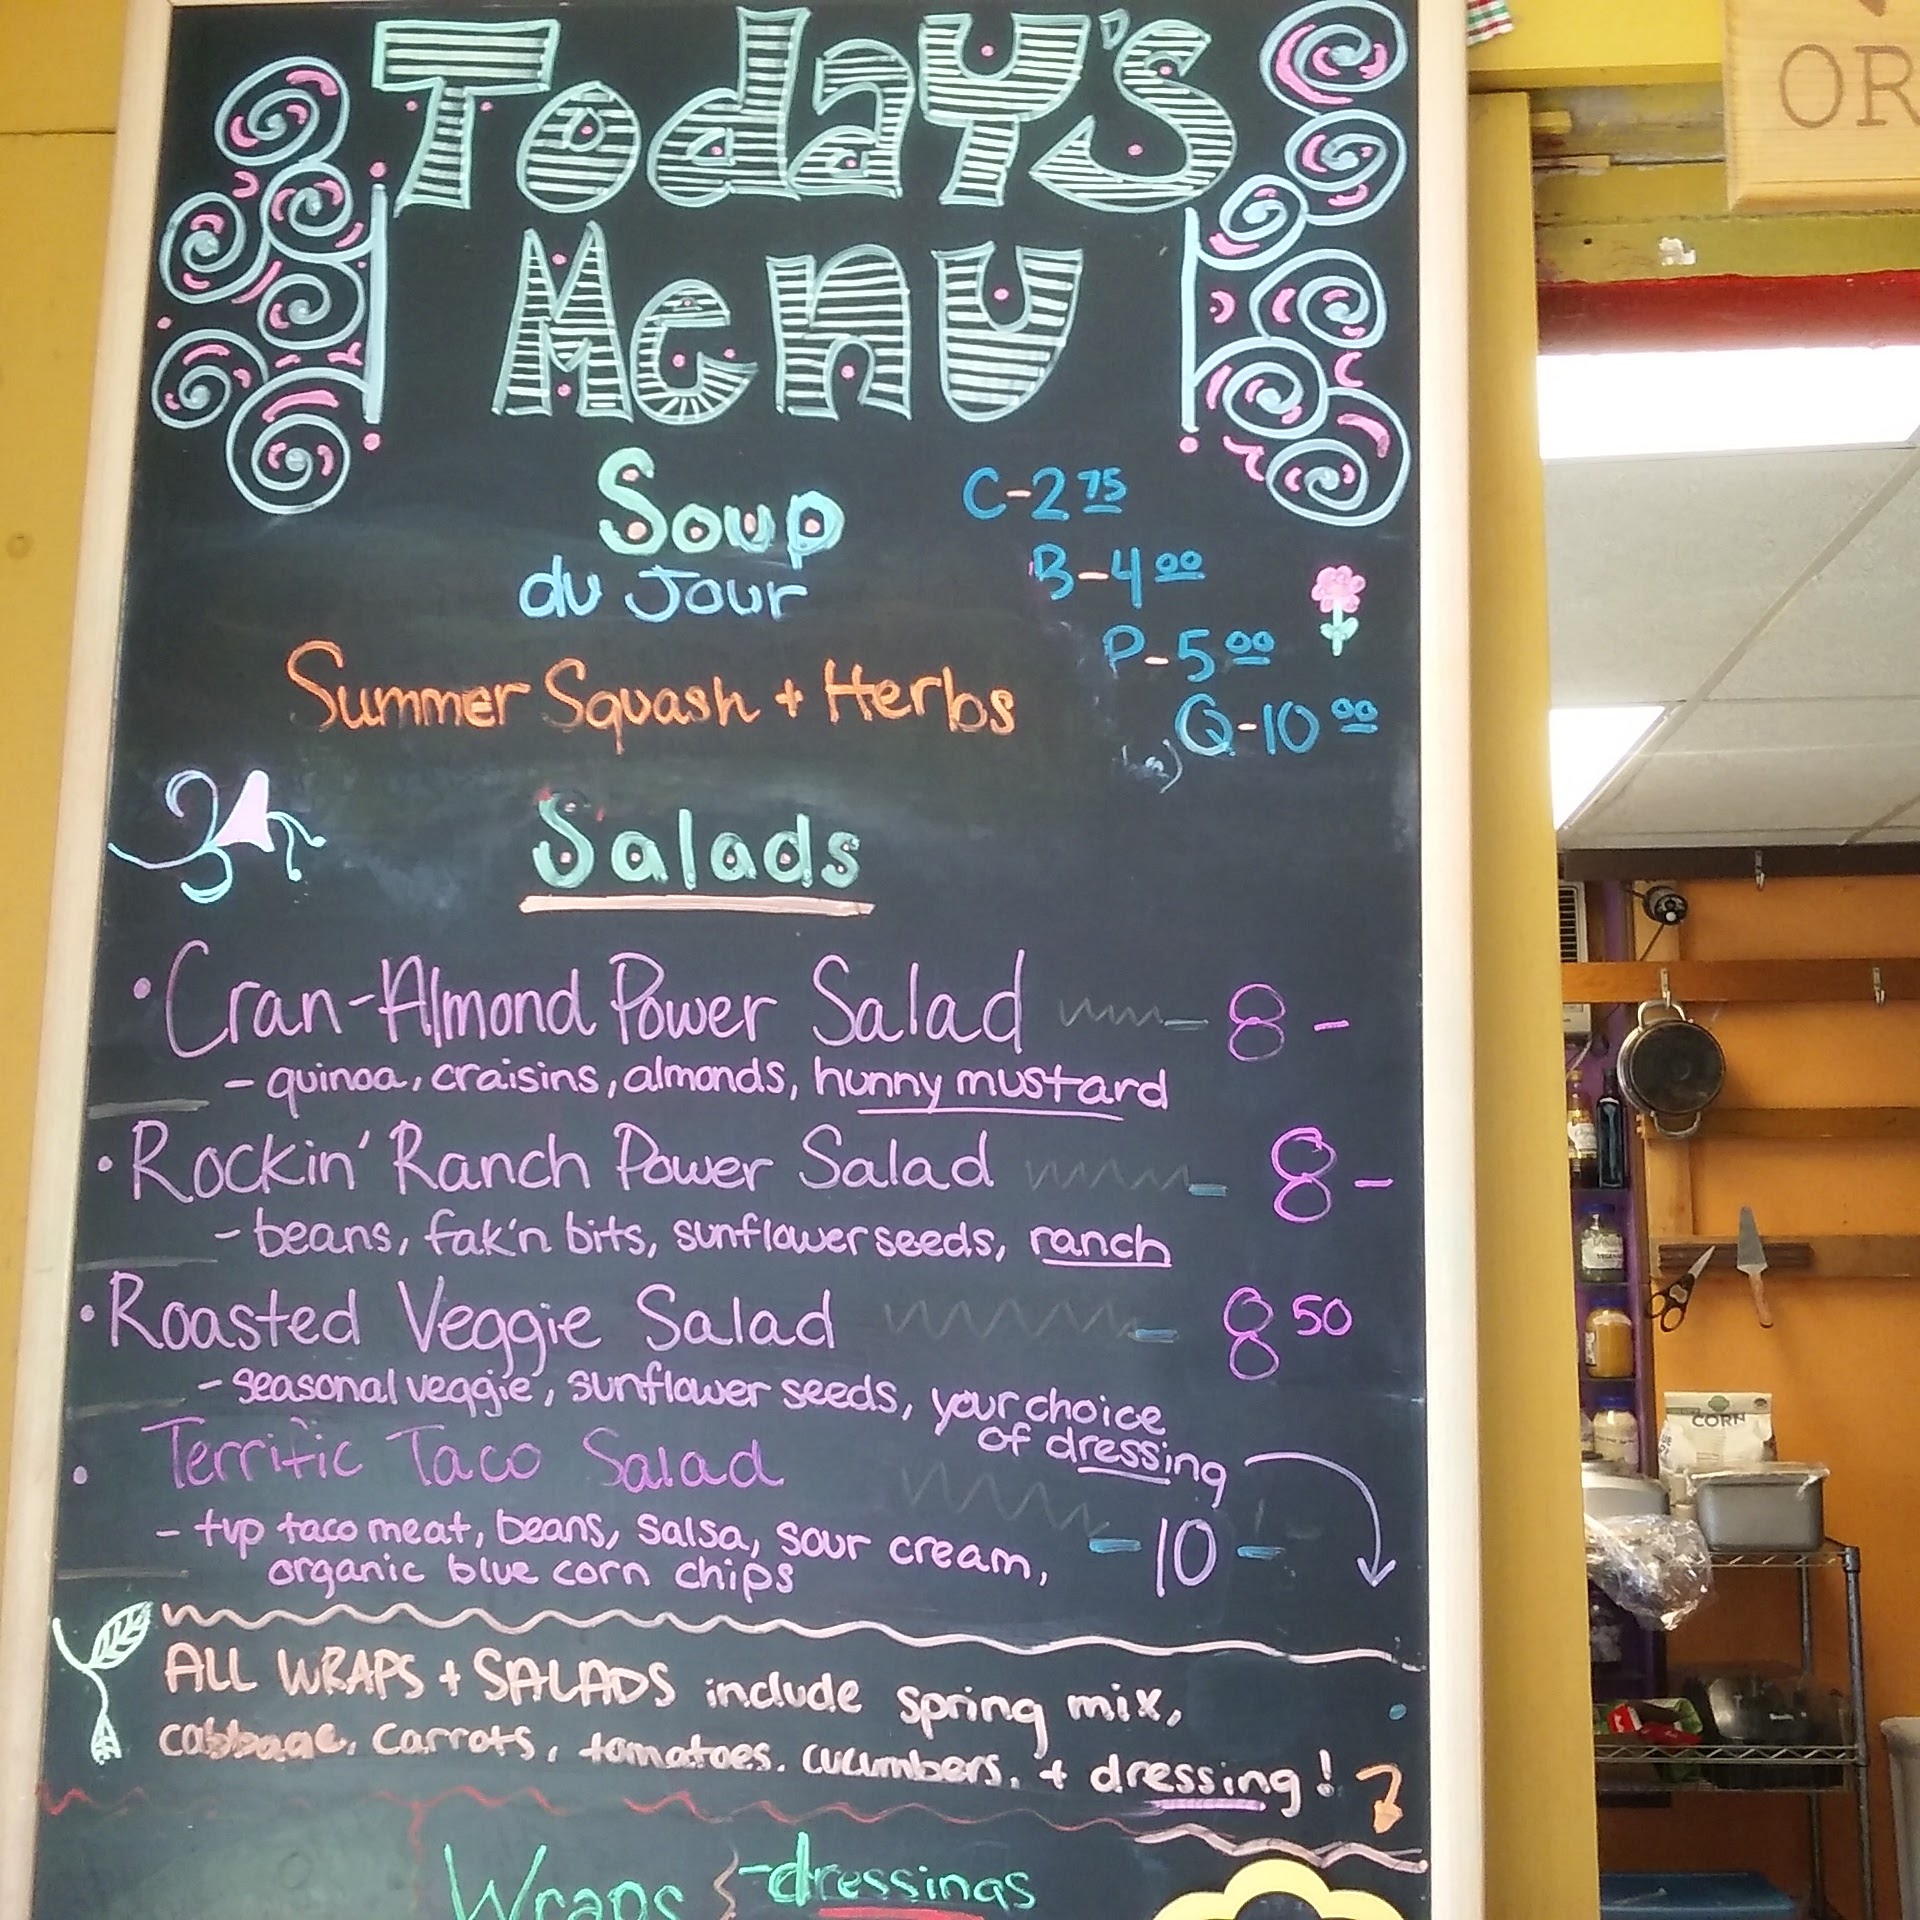 Today's
Menu
Soup
du Jour
C-2 75
B-4 00
P-5 00
Q-10 00
Summer Squash + Herbs
Salads
• Cran-Almond Power Salad - 8 -
- quinoa, craisins, almonds, hunny mustard
• Rockin' Ranch Power Salad - 8 -
- beans, fak'n bits, sunflower seeds, ranch
• Roasted Veggie Salad - 8 50
- seasonal veggie, sunflower seeds, your choice
of dressing
• Terrific Taco Salad
- tvp taco meat, beans, salsa, sour cream, - 10 -
organic blue corn chips
ALL WRAPS + SALADS include spring mix,
cabbage, carrots, tomatoes, cucumbers, + dressing!
Wraps { -dressings
OR
CORN